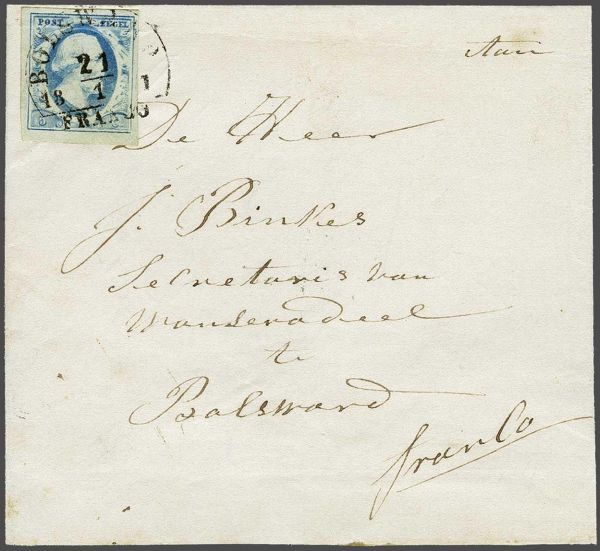 POST ZEGEL
BOLSWARD
21
18 1 1
FRANCO
Aan
De Heer
J. Binkes
Secretaris van
Wonseradeel
te
Bolsward
franco